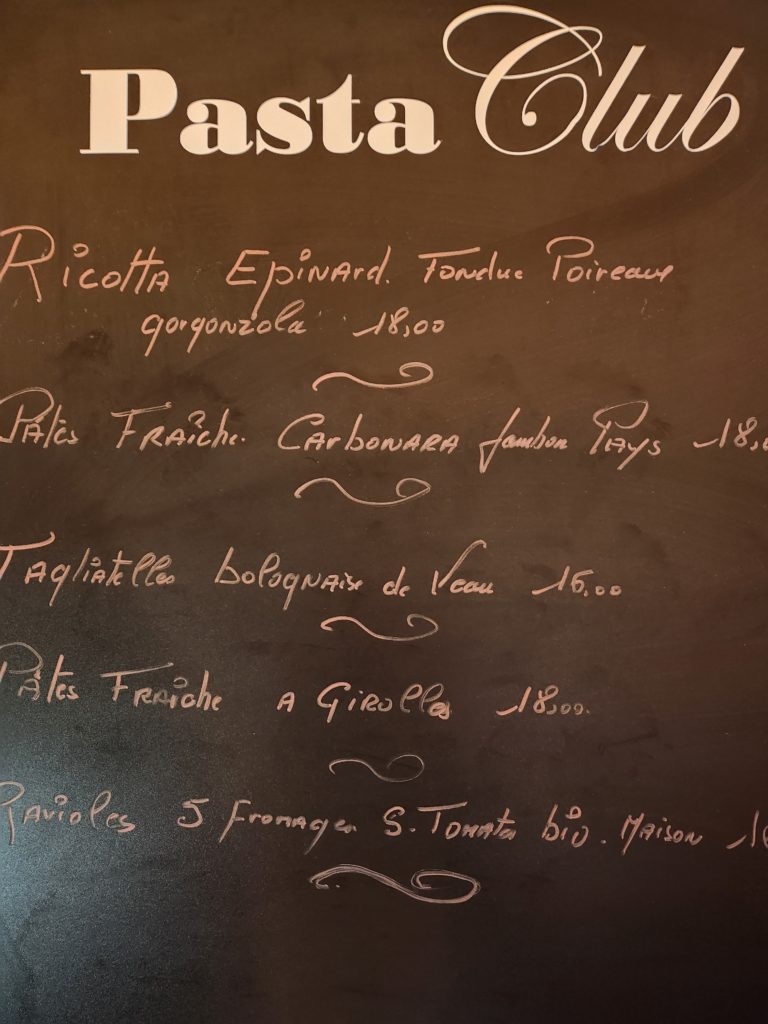 Pasta Club
Ricotta Epinard. Fondue Poireaux
gorgonzola 18,00
Pâtes Fraîche. Carbonara Jambon Pays 18,0
Tagliatelles bolognaise de Veau 16.00
Pâtes Fraîche A Girolles 18,00.
Ravioles 5 Fromages S. Tomates bio. Maison 16